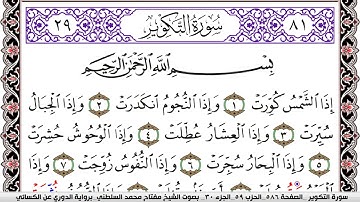 ٢٩ سُورَةُ التَّكْوِيرِ ٨١
بِسْمِ اللَّهِ الرَّحْمَٰنِ الرَّحِيمِ
إِذَا الشَّمْسُ كُوِّرَتْ ١ وَإِذَا النُّجُومُ انكَدَرَتْ ٢ وَإِذَا الْجِبَالُ
سُيِّرَتْ ٣ وَإِذَا الْعِشَارُ عُطِّلَتْ ٤ وَإِذَا الْوُحُوشُ حُشِرَتْ
٥ وَإِذَا الْبِحَارُ سُجِّرَتْ ٦ وَإِذَا النُّفُوسُ زُوِّجَتْ ٧ وَإِذَا
سورة التكوير الصفحة ٥٨٦ الحزب ٥٩ الجزء ٣٠ بصوت الشيخ مفتاح محمد السلطني برواية الدوري عن الكسائي